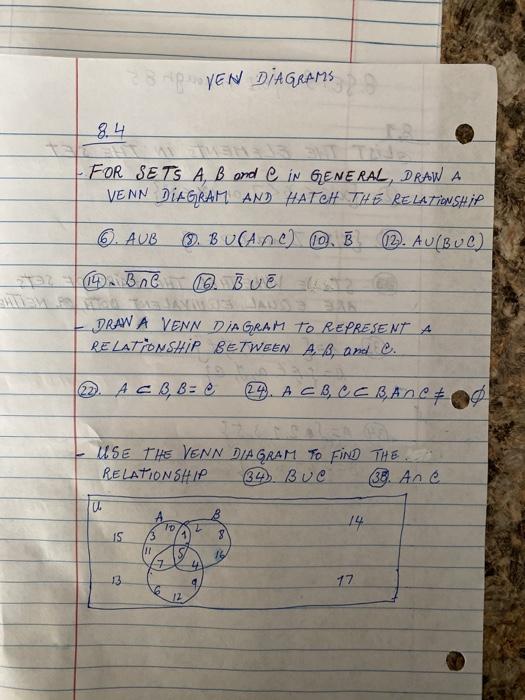 VEN DIAGRAMS
8.4
- FOR SETS A, B and C IN GENERAL, DRAW A
VENN DIAGRAM AND HATCH THE RELATIONSHIP
⑥. A∪B ⑧. B∪(A∩C) ⑩. B̅ ⑫. A∪(B∪C)
⑭. B̅∩̅C̅ ⑯. B̅∪C̅
- DRAW A VENN DIAGRAM TO REPRESENT A
RELATIONSHIP BETWEEN A, B, and C.
㉒. A ⊂ B, B = C ㉔. A ⊂ B, C ⊂ B, A∩C ≠ ∅
- USE THE VENN DIAGRAM TO FIND THE
RELATIONSHIP ㉞. B∪C ㊳. A∩C
U
A B
15 3 10 1 2 8 14
11 5 16
7 4
13 9 17
6 12